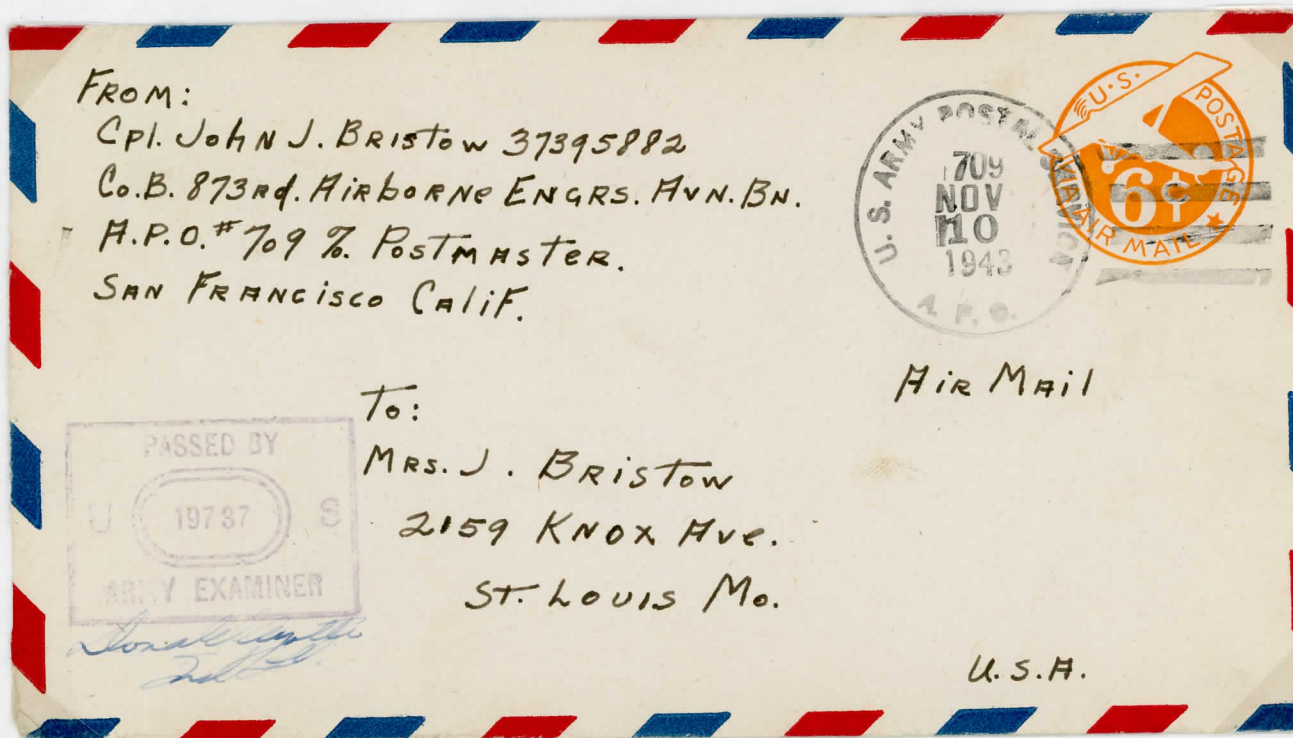 FROM:
Cpl. John J. Bristow 37395882
Co.B. 873rd. Airborne Engrs. Avn. Bn.
A.P.O. # 709 % Postmaster.
San Francisco Calif.
U.S. ARMY POSTAL SERVICE
709
NOV
10
1943
A. P. O.
U.S. POSTAGE
6¢
AIR MAIL
Air Mail
To:
Mrs. J. Bristow
2159 Knox Ave.
St. Louis Mo.
U.S.A.
PASSED BY
U 19737 S
ARMY EXAMINER